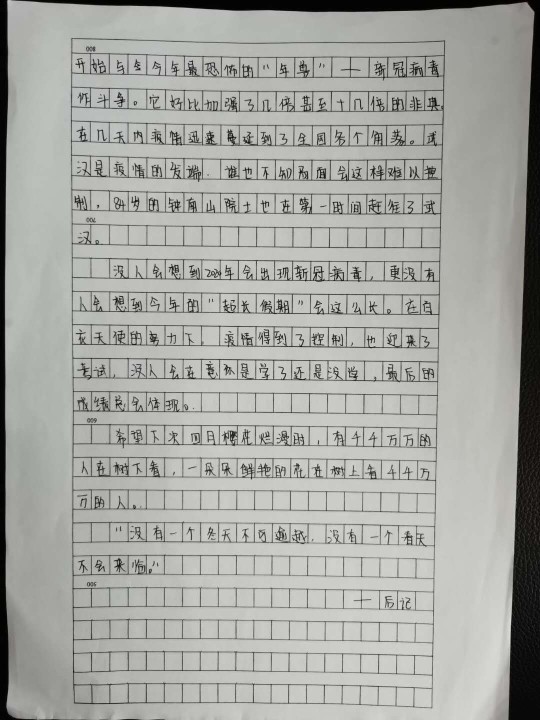 008
开始与今今年最恐怖的“年兽”——新冠病毒
作斗争。它好比加强了几倍甚至十几倍的非典
在几天内疫情迅速蔓延到了全国各个角落。武
汉是疫情的发端，谁也不知为何会这样难以控
制，84岁的钟南山院士也在第一时间赶往了武
006
汉。
没人会想到2020年会出现新冠病毒，更没有
人会想到今年的“超长假期”会这么长。在白
衣天使的努力下，疫情得到了控制，也迎来了
考试，没人会在意你是学了还是没学，最后的
成绩总会体现。
009
希望下次四月樱花烂漫时，有千千万万的
人在树下看，一朵朵鲜艳的花在树上看千千万
万的人。
“没有一个冬天不可逾越，没有一个春天
不会来临。”
005
——后记